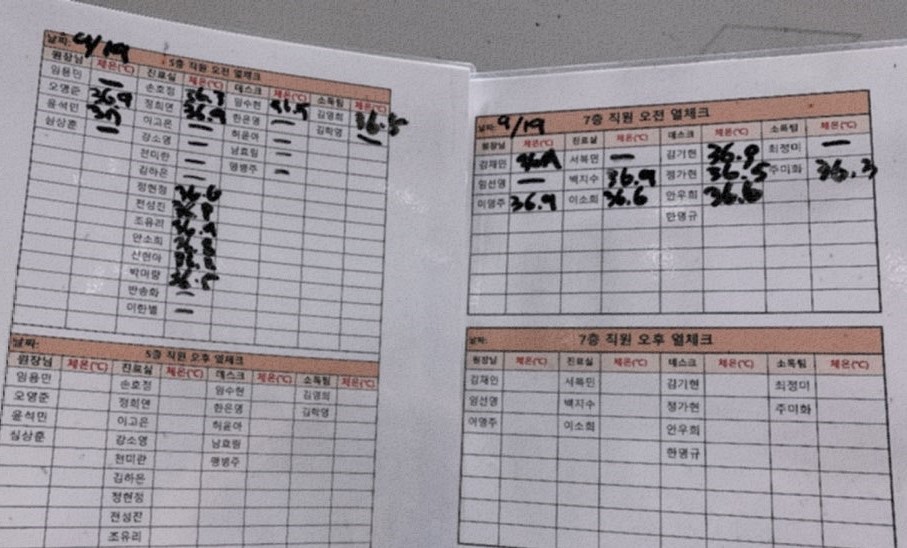 날짜: 9/19
5층 직원 오전 열체크
원장님 체온(℃) 진료실 체온(℃) 데스크 체온(℃) 소독팀 체온(℃)
임용민 — 손호정 36.7 임수현 김영희 36.5
오영준 36.9 정희연 36.9 한은영 — 김학영 —
윤석민 이고은 — 허윤아 —
심상훈 — 강소영 — 남효림 —
전미란 — 맹병주 —
김하은 —
정현정 36.6
전성진 36.8
조유리 36.9
안소희 36.8
신현아
박미량 36.5
반송화 —
이한별 —
날짜:
5층 직원 오후 열체크
원장님 체온(℃) 진료실 체온(℃) 데스크 체온(℃) 소독팀 체온(℃)
임용민 손호정 임수현 김영희
오영준 정희연 한은영 김학영
윤석민 이고은 허윤아
심상훈 강소영 남효림
전미란 맹병주
김하은
정현정
전성진
조유리
날짜: 9/19
7층 직원 오전 열체크
원장님 체온(℃) 진료실 체온(℃) 데스크 체온(℃) 소독팀 체온(℃)
김재민 서복민 — 김기현 36.8 최정미 —
임선영 — 백지수 36.9 정가현 36.5 주미화 36.3
이영주 36.9 이소희 36.6 안우희 36.6
한명규
날짜:
7층 직원 오후 열체크
원장님 체온(℃) 진료실 체온(℃) 데스크 체온(℃) 소독팀 체온(℃)
김재민 서복민 김기현 최정미
임선영 백지수 정가현 주미화
이영주 이소희 안우희
한명규